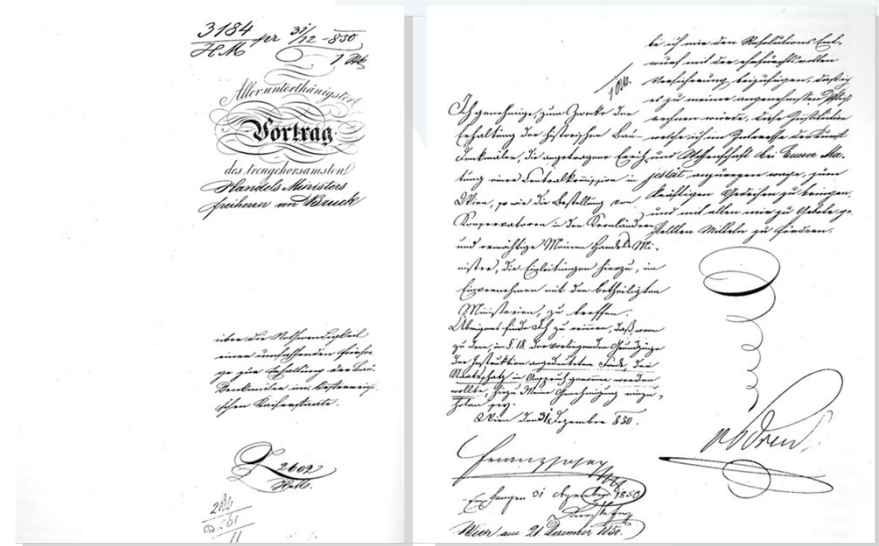 3184
HM per 31/12 - 850
1 Blt
Allerunterthänigster
Vortrag
des treugehorsamsten
Handels Ministers
freiherrn von Bruck
über die Nothwendigkeit
einer umfassenden Fürsor-
ge zur Erhaltung der Bau-
Denkmäler im österreichi-
schen Kaiserstaate.
2602
HM.
Ich genehmige, zum Zwecke der
Erhaltung der historischen Bau-
denkmäler, die angetragene Errich-
tung einer Centralkommission in
Wien, so wie die Bestellung von
Konservatoren in den Kronländern
und ermächtige Meinen Handels Mi-
nister, die Einleitungen hierzu, im
Einvernehmen mit den betheiligten
Ministerien, zu treffen.
Übrigens finde Ich zu erinnern, daß, wenn
zu dem, im § 18. der vorliegenden Grundzüge
der Instruktion angedeuteten Fonde, der
Staatsschatz in Anspruch genommen werden
wollte, hiezu Meine Genehmigung einzu-
holen sey.
Wien den 31 Dezember 850.
Franz Joseph
Empfangen 31 Dezember 1850
Wien am 21. Dezember 1850.
be ich mir den Resolutions Ent-
wurf mit der ehrfurchtsvollen
Versicherung beizufügen, daß ich
es zu meiner angenehmsten Pflicht
rechnen würde, diese Institution
welche ich im Interesse der Kunst
und Wissenschaft bei Euerer Ma-
jestät anzuregen wage, zum
kräftigen Gedeihen zu bringen,
und mit allen mir zu Gebote ge-
stellten Mitteln zu fördern.
vBruck